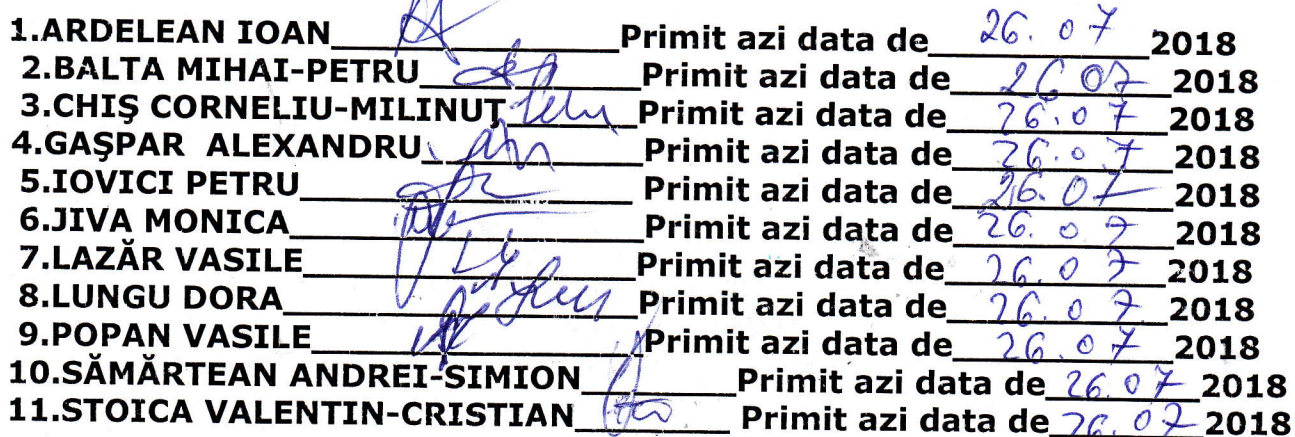 1.ARDELEAN IOAN____________Primit azi data de 26.07 2018
2.BALTA MIHAI-PETRU____________Primit azi data de 26 07 2018
3.CHIŞ CORNELIU-MILINUŢ____________Primit azi data de 26.07 2018
4.GAŞPAR ALEXANDRU____________Primit azi data de 26.07 2018
5.IOVICI PETRU____________Primit azi data de 26.07 2018
6.JIVA MONICA____________Primit azi data de 26.07 2018
7.LAZĂR VASILE____________Primit azi data de 26.07 2018
8.LUNGU DORA____________Primit azi data de 26.07 2018
9.POPAN VASILE____________Primit azi data de 26.07 2018
10.SĂMĂRTEAN ANDREI-SIMION____________Primit azi data de 26.07 2018
11.STOICA VALENTIN-CRISTIAN____________Primit azi data de 26.07 2018